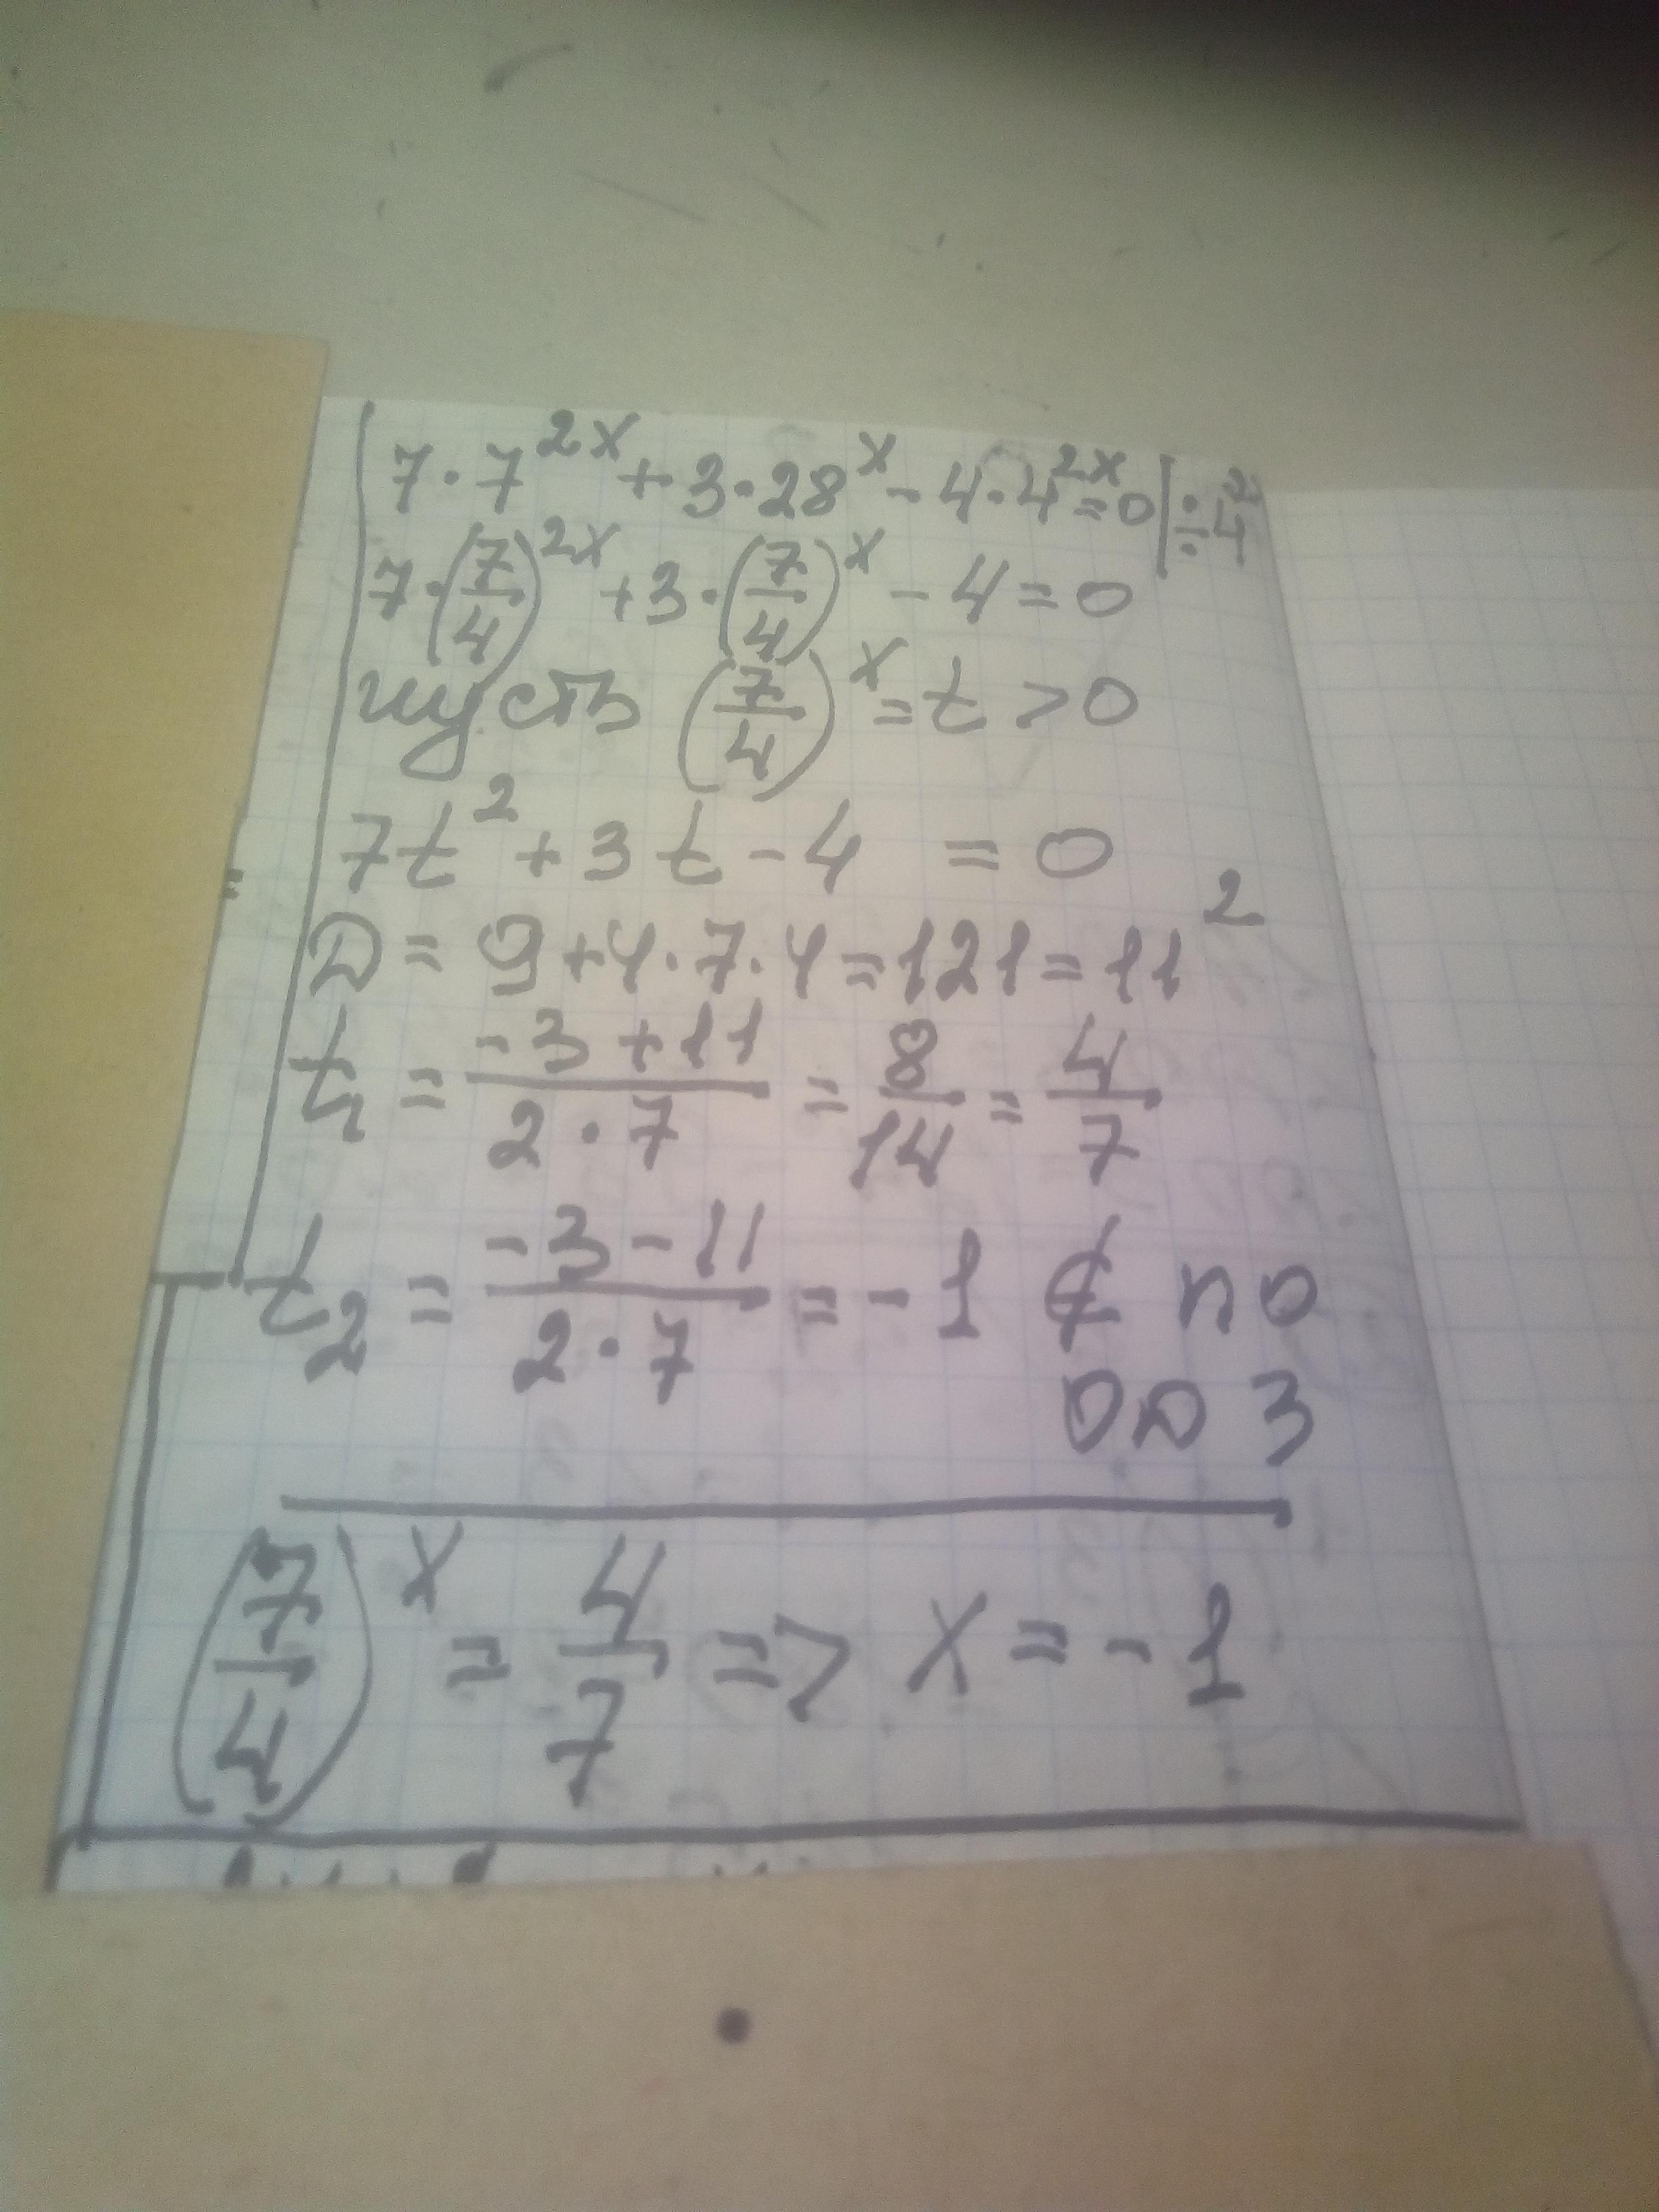 7·7^{2x}+3·28^x-4·4^{2x}=0|÷4^2
7·(7/4)^{2x}+3·(7/4)^x-4=0
пусть (7/4)^x=t>0
7t^2+3t-4=0
D=9+4·7·4=121=11^2
t_1=(-3+11)/(2·7)=8/14=4/7
t_2=(-3-11)/(2·7)=-1 ∉ по
ОДЗ
(7/4)^x=4/7=>x=-1